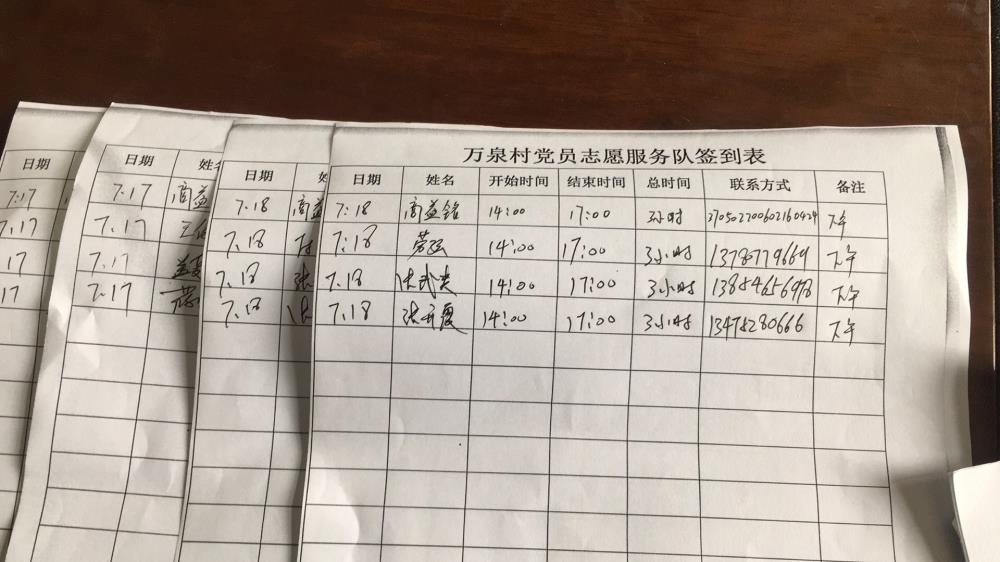 万泉村党员志愿服务队签到表
日期 日期 日期 日期 姓名 开始时间 结束时间 总时间 联系方式 备注
7.17 7.17 商益 7.18 商益 7:18 商益铭 14:00 17:00 3小时 下午
7.17 7.17 7.18 7:18 劳强 14:00 17:00 3小时 下午
17 7.17 7.18 张 7.18 14:00 17:00 3小时 13854656978 下午
17 7.17 7.18 7.18 14:00 17:00 3小时 13475280666 下午